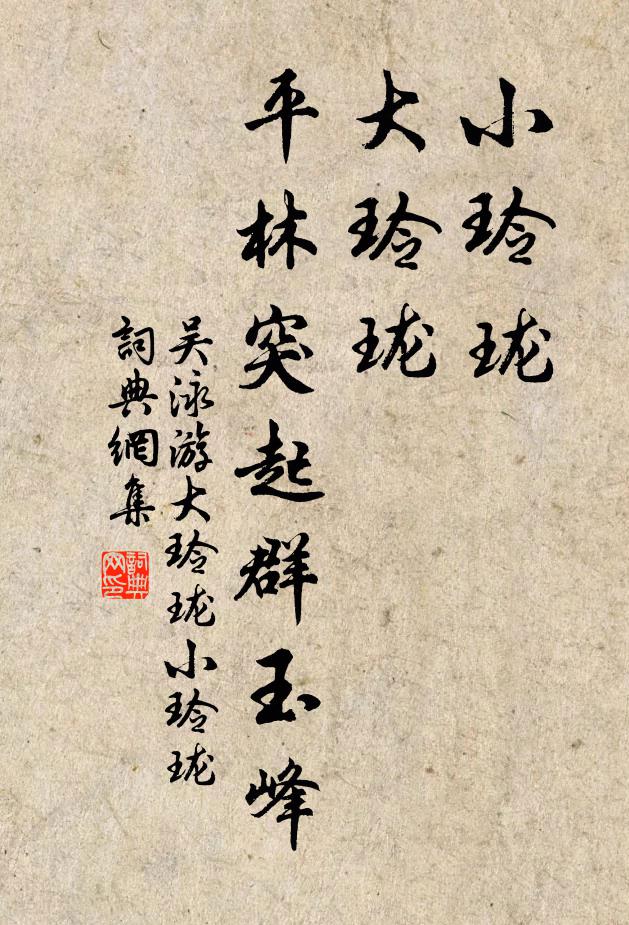 小玲珑
大玲珑
平林突起群玉峰
吴泳游大玲珑小玲珑
詞典網集
詞典网印